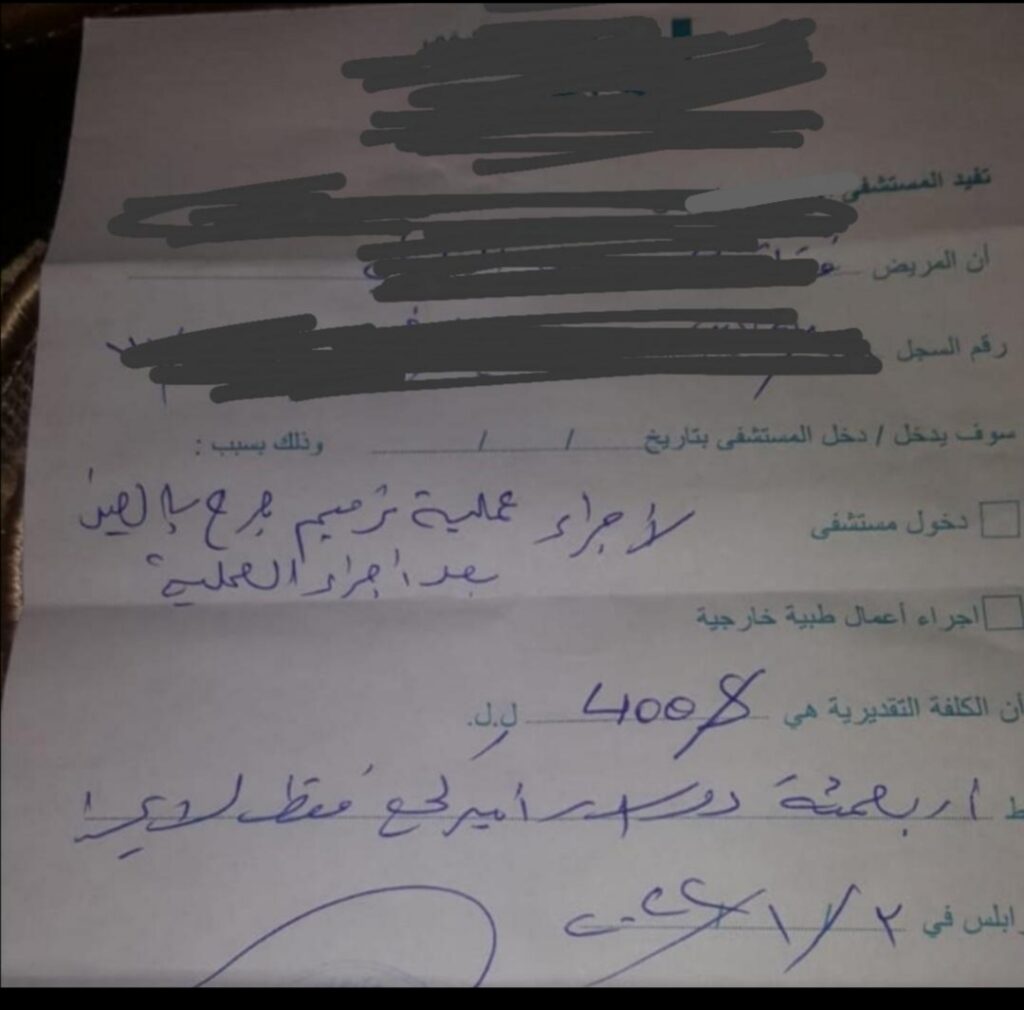 تفيد المستشفى
أن المريض
رقم السجل
سوف يدخل / دخل المستشفى بتاريخ / / وذلك بسبب :
دخول مستشفى
لأجراء عملية ترميم جرح بالعين
بعد اجراء العملية
اجراء أعمال طبية خارجية
أن الكلفة التقديرية هي 400$ ل.ل.
اربعمئة دولار أميركي فقط
رابلس في ٢/١/٢٠٢٢